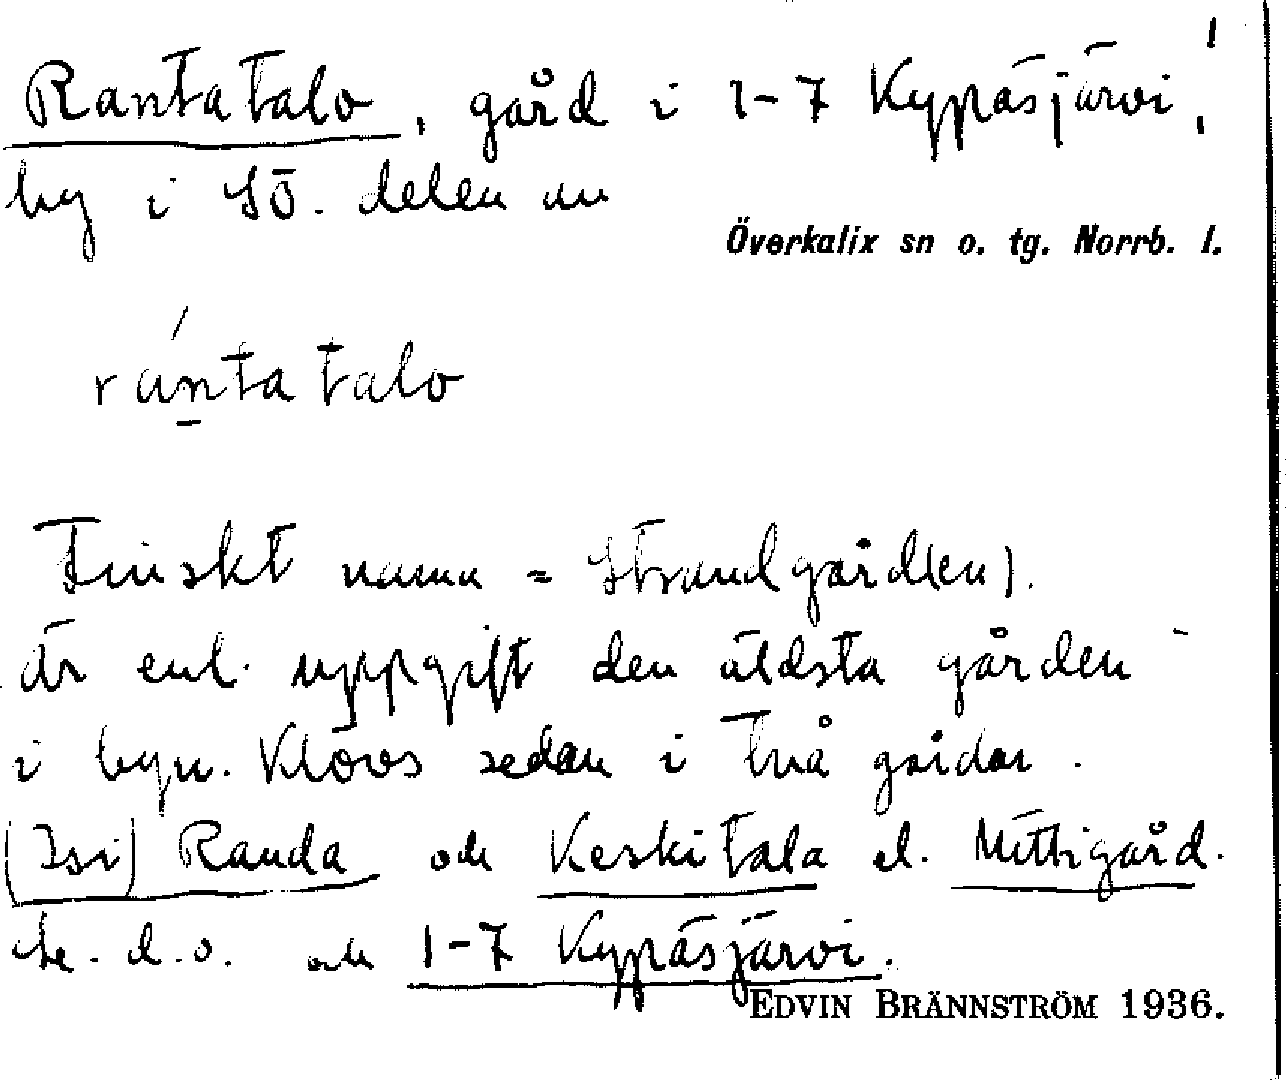 Rantatalo, gård i 1-7 Kypäsjärvi,
by i SÖ. delen av
Överkalix sn o. tg. Norrb. l.
rántatalo
Finskt namn = Strandgård(en).
är enl. uppgift den äldsta gården
i byn. Klövs sedan i två gårdar.
(Isi) Randa och Keskitala el. Mittigård.
Se. d. o. och 1-7 Kypäsjärvi.
EDVIN BRÄNNSTRÖM 1936.